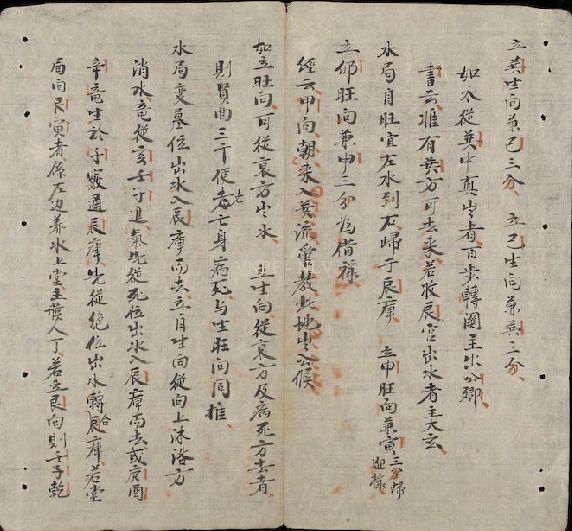 立巽生向兼巳三分 立巳生向兼巽三分
如不從巽中真出者百步轉圜主出公卿
書云惟有巽方可去來若收辰宮出水者主大玄
水局自旺宜左水到右歸于辰庫 立申旺向兼寅三分
立卯旺向兼甲三分為借祿
經云甲向朝來入巽流管教此地出公侯
如立旺向可從衰方出水 立生向從衰方及病死方去者
則賢曲三千便者亡身病死与生旺向同推
水局变墓位出水入辰庫而去立自生向從向上沐浴方
消水竜從亥壬方進氣先從死位出水入辰庫而去或庚酉
辛竜生於子竅通辰庫先從絕位出水歸辰庫若堂
局向艮寅者係左边養水上堂主發人丁若立艮向則壬子乾